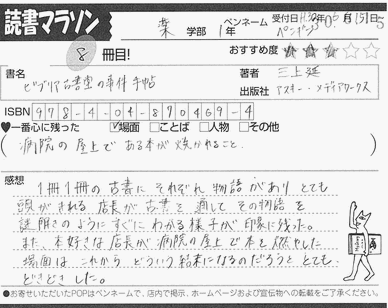 読書マラソン
薬 学部 1年
ペンネーム ペンペン
受付日 H30年 5月 15日
8 冊目!
おすすめ度
書名 ビブリア古書堂の事件手帖
著者 三上延
出版社 アスキー・メディアワークス
ISBN 978-4-04-870469-4
♥一番心に残った ☑場面 □ことば □人物 □その他
(病院の屋上である本が焼かれること。)
感想
1冊1冊の古書にそれぞれ物語があり とても
店長が古書を通してその物語を
謎解きのようにすぐにわかる様子が印象に残った。
また、本好きな店長が病院の屋上で本を燃やした
場面はこれからどういう結末になるのだろうと とても
どきどきした。
●お寄せいただいたPOPはペンネームで、店内で掲示、ホームページおよび宣伝物への転載をご了承ください。